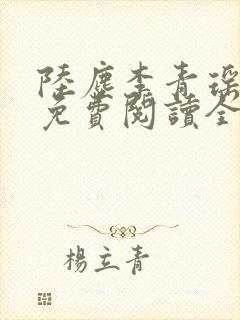 陸塵李青瑶
免費閱讀全
楊立青